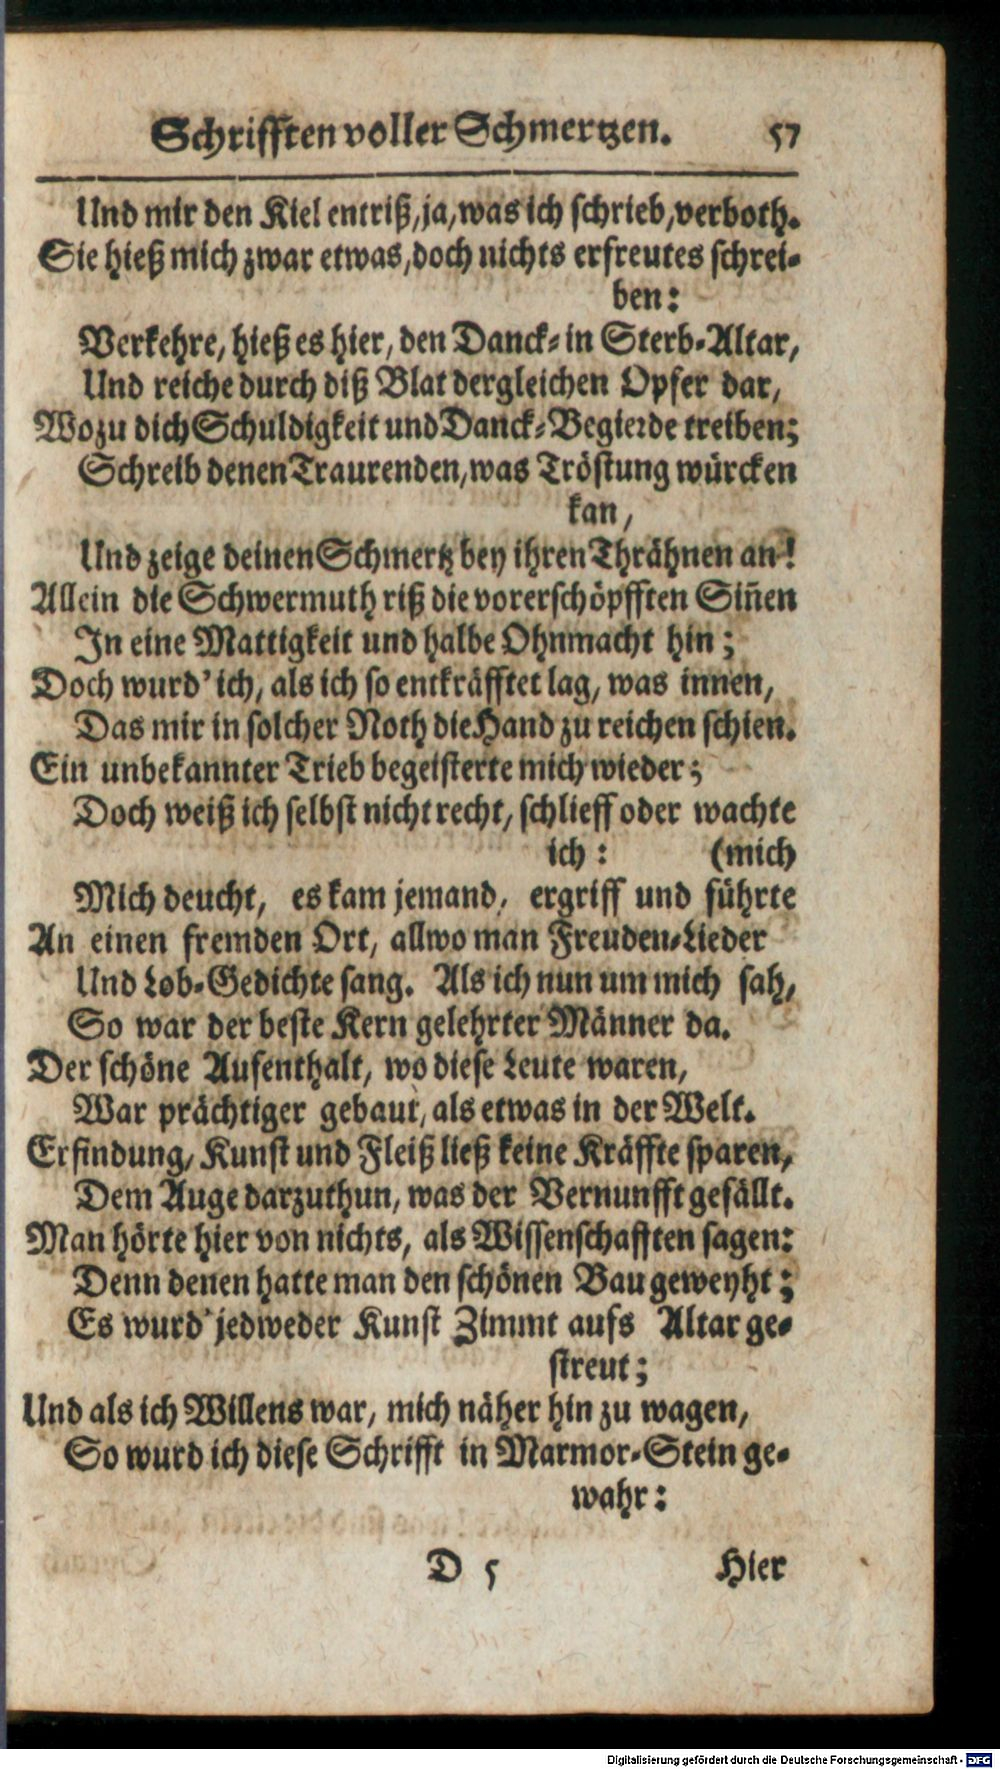 Schrifften voller Schmertzen. 57
Und mir den Kiel entriß, ja, was ich schrieb, verboth.
Sie hieß mich zwar etwas, doch nichts erfreutes schrei-
ben:
Verkehre, hieß es hier, den Danck- in Sterb-Altar,
Und reiche durch diß Blat dergleichen Opfer dar,
Wozu dich Schuldigkeit und Danck-Begierde treiben;
Schreib denen Traurenden, was Tröstung würcken
kan,
Und zeige deinen Schmertz bey ihren Thrähnen an!
Allein die Schwermuth riß die vorerschöpfften Siñen
In eine Mattigkeit und halbe Ohnmacht hin;
Doch wurd' ich, als ich so entkräfftet lag, was innen,
Das mir in solcher Noth die Hand zu reichen schien.
Ein unbekannter Trieb begeisterte mich wieder;
Doch weiß ich selbst nicht recht, schlieff oder wachte
ich: (mich
Mich deucht, es kam jemand, ergriff und führte
An einen fremden Ort, allwo man Freuden-Lieder
Und Lob-Gedichte sang. Als ich nun um mich sah,
So war der beste Kern gelehrter Männer da.
Der schöne Aufenthalt, wo diese Leute waren,
War prächtiger gebaut, als etwas in der Welt.
Erfindung, Kunst und Fleiß ließ keine Kräffte sparen,
Dem Auge darzuthun, was der Vernunfft gefällt.
Man hörte hier von nichts, als Wissenschafften sagen:
Denn denen hatte man den schönen Bau geweyht;
Es wurd' jedweder Kunst Zimmt aufs Altar ge-
streut;
Und als ich Willens war, mich näher hin zu wagen,
So wurd ich diese Schrifft in Marmor-Stein ge-
wahr:
D 5 Hier
Digitalisierung gefördert durch die Deutsche Forschungsgemeinschaft - DFG